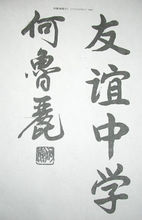 友谊中学
何鲁丽